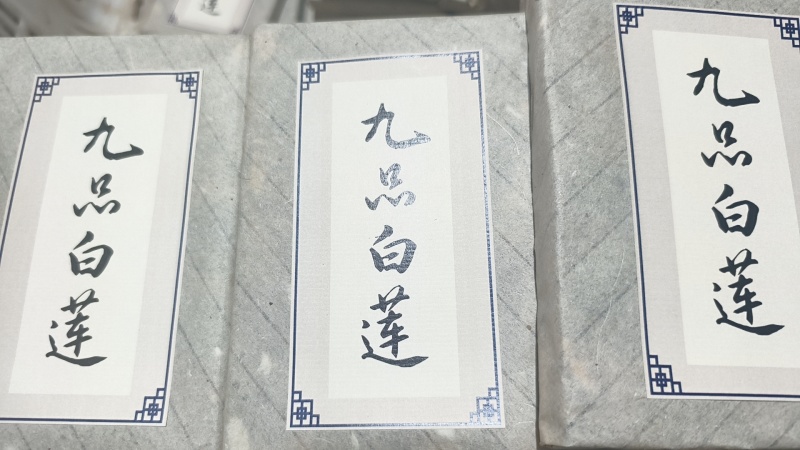 九品白莲
九品白莲
九品白莲
莲